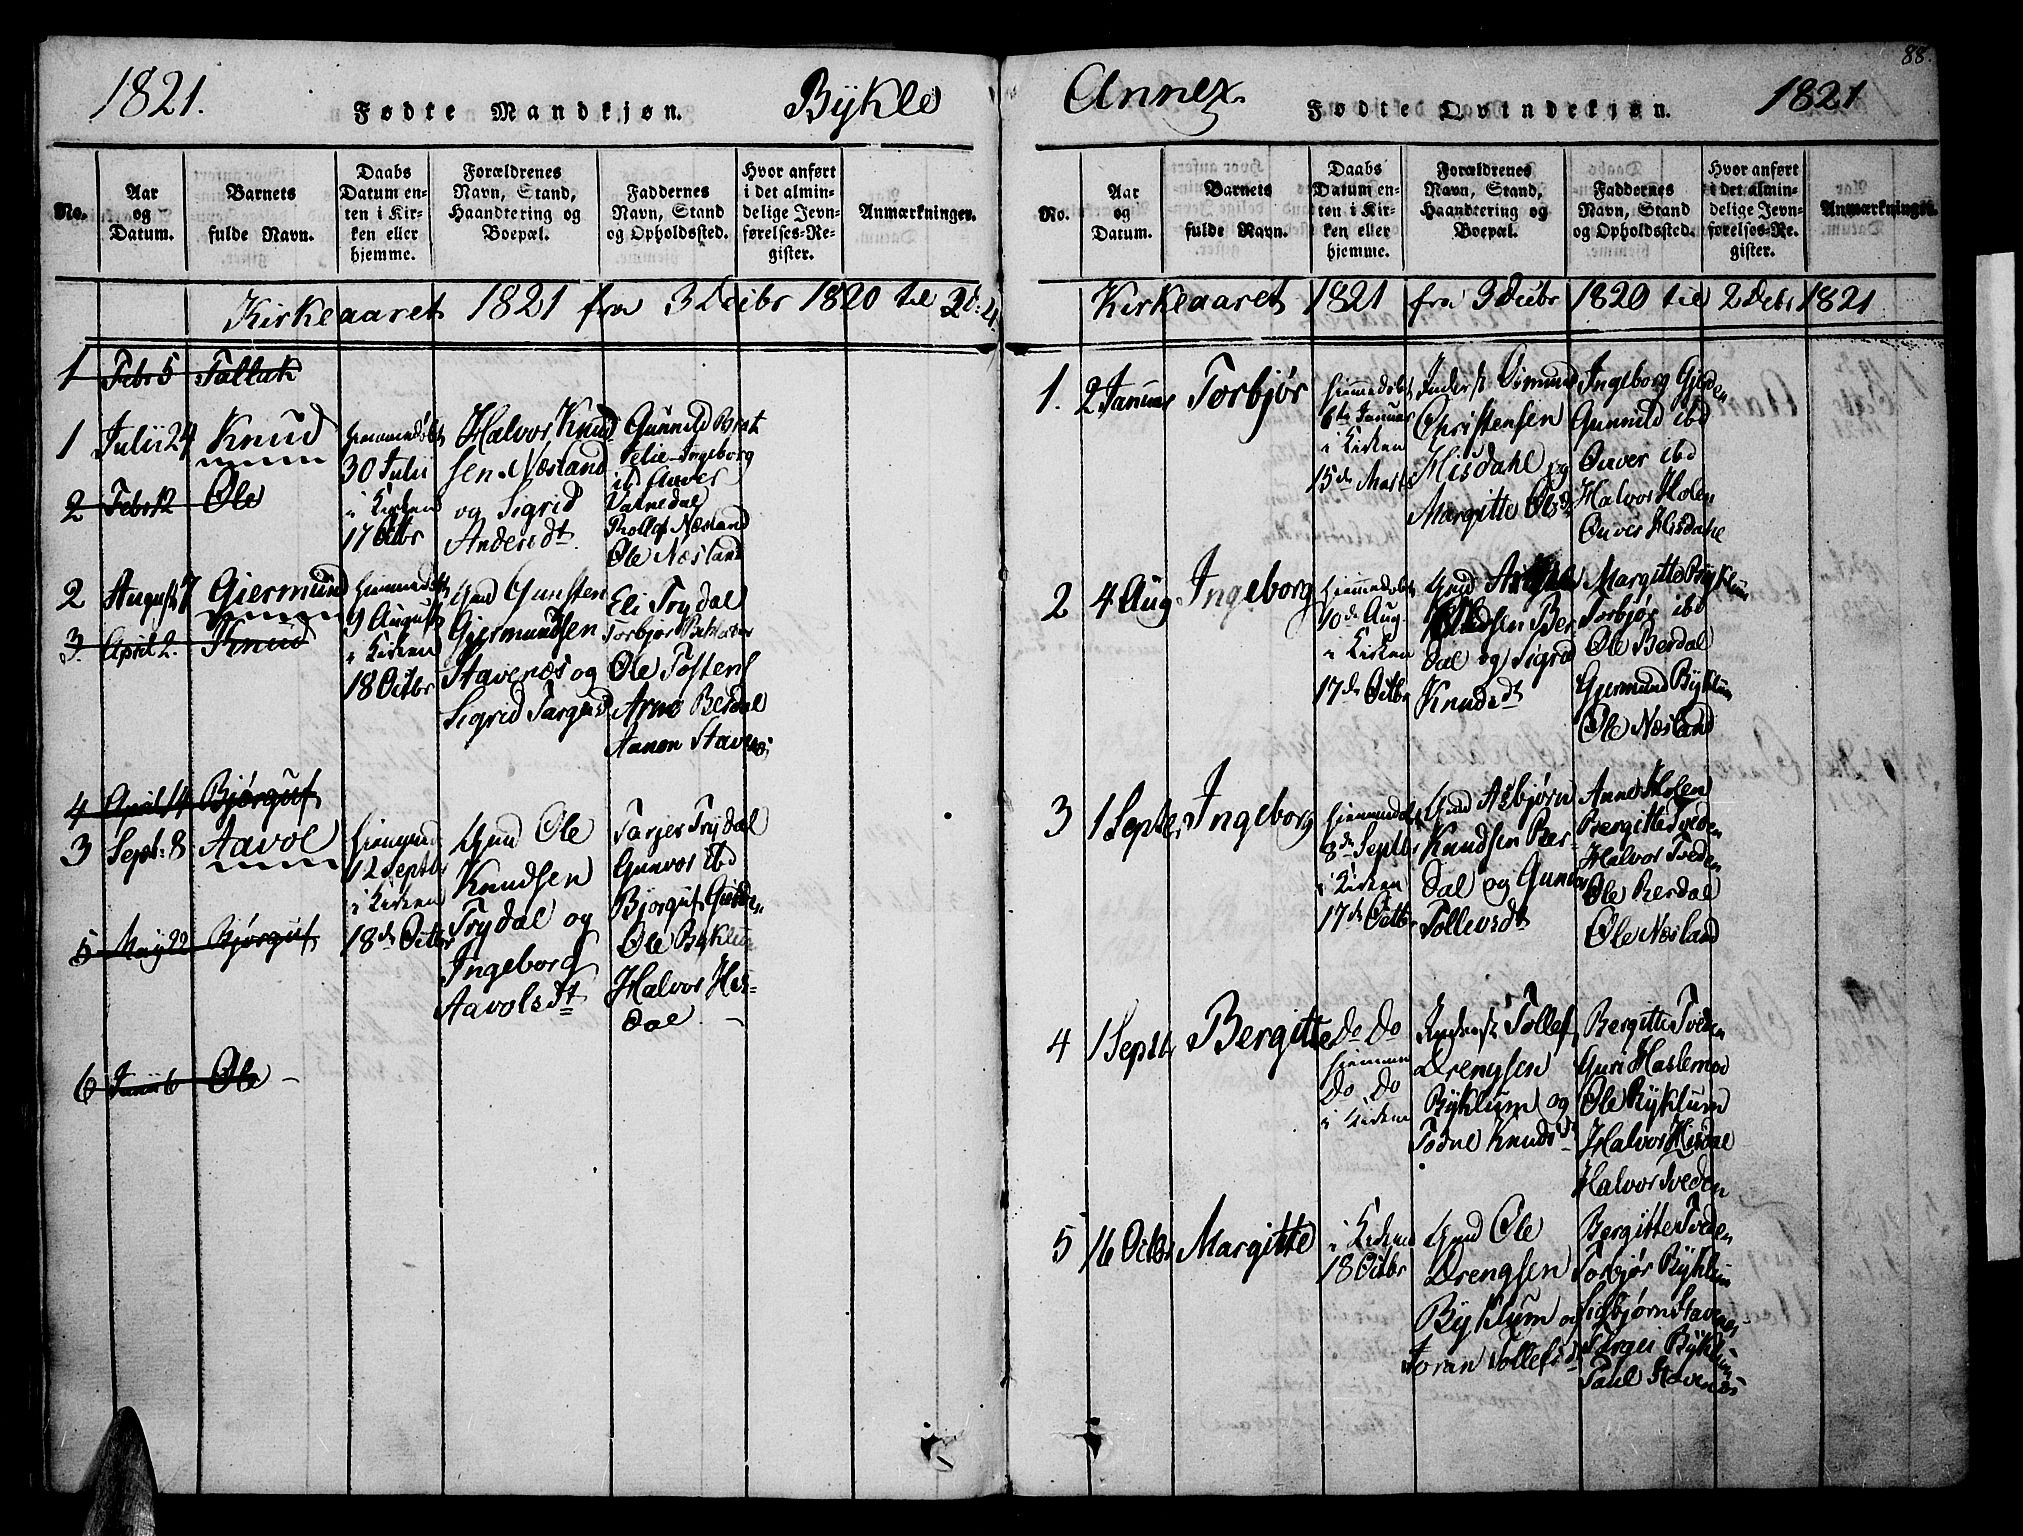 1821.
Fødte Mandkjøn.
Bykle
No.
Aar
og
Datum.
Barnets
fulde Navn.
Daabs
Datum en-
ten i Kir-
ken eller
hjemme.
Forældrenes
Navn, Stand,
Haandtering og
Boepæl.
Faddernes
Navn, Stand
og Opholdssted.
Hvor anført
i det almin-
delige Jevn-
førelses-Re-
gister.
Anmærkninger.
Kirkeaaret 1821 fra 3 Decbr 1820 til
1 Febr 5 Tallak
1 Julii 24 Knud
30 Julii
i Kirken
17 Octbr
Halvor Knud
sen Næsland
og Sigrid
Andersdt.
Gunnild
Ingeborg
Valnedal
Næsland
Ole Næsland
2 Febr 12 Ole
2 August 7 Giermund
9 August
i Kirken
18 Octbr
Gmd Gunsten
Gjermundsen
Stavenæs og
Sigrid
Eli Trydal
Torbjør
Ole Tostens
Arne Berdal
Aanon
3. April 2. Knud
4 April 14 Bjørguf
3 Sept: 8 Aavol
12 Septbr
i Kirken
18de Octbr
Gmd Ole
Knudsen
Trydal og
Ingeborg
Aavolsdt
Tarjer Trydal
Gunvor ibd
Bjørguf
Ole Byklum
Halvor His-
dal
5 May 22 Bjørguf
6 Junii 6 Ole
88.
Annex.
Fødte Qvindekjøn.
1821
No.
Aar
og
Datum.
Barnets
fulde Navn.
Daabs
Datum en-
ten i Kir-
ken eller
hjemme.
Forældrenes
Navn, Stand,
Haandtering og
Boepæl.
Faddernes
Navn, Stand
og Opholdssted.
Hvor anført
i det almin-
delige Jevn-
førelses-Re-
gister.
Anmærkninger.
Kirkeaaret 1821 fra 3 Decbr 1820 til 2 Decbr 1821
1. 2 Januar Torbjør
6te Januar
i Kirken
15de Marts
Inderst Osmund
Christensen
Hisdahl og
Margitte Olsdt
Ingeborg Gjelden
Gunnild ibd
Onver ibd
Halvor Holen
Onver Hisdahl
2 4 Aug Ingeborg
10de Aug.
i Kirken
17de Octbr
Gmd
Ber
dal og Sigrid
Knudsdt
Margitte Byklum
Torbjør ibd
Ole Berdal
Gjermund Byklum
Ole Næsland
3 1 Septer Ingeborg
8de Septbr
i Kirken
17de Octbr
Gmd Asbjørn
Knudsen Ber-
dal og Gunvor
Tollevsdt
Anne Holen
Bergitte Tveden
Halvor Tveden
Ole Berdal
Ole Næsland
4 1 Septr Bergitte
Do Do
hjemme
Do Do
i Kirken
Inderst Tollef
Drengsen
Byklum og
Knudsdt
Bergitte Tveden
Guri Haslemo
Ole Byklum
Halvor Hisdal
Halvor Tveden
5 16 Octbr Margitte
i Kirken
18 Octbr
Gmd Ole
Drengsen
Byklum og
Joran Tollefsdt
Bergitte Tveden
Torbjør Byklum
Stavenæs
Torgei Byklum
Paul Stavenæs